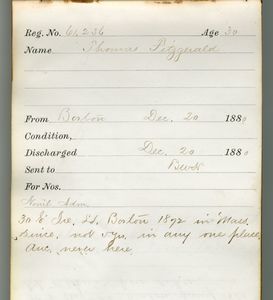 Reg. No. 61,236 Age 30
Name Thomas Fitzgerald
From Boston Dec. 20 188
Condition,
Discharged Dec. 20 188
Sent to
For Nos.
Adm.
30 Ire. Boston 1872 in Mass.
since, not 5 yrs. in any one place
never here.